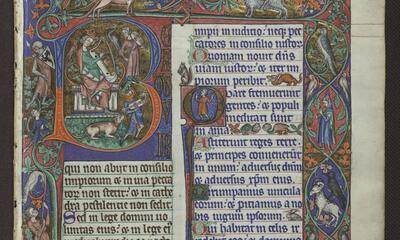 B
qui non abijt in consilio
impiorum & in uia pecca
torum non stetit: & in cathe
dra pestilentie non sedit:
Sed in lege domini uo
luntas eius: & in lege
impii in iudicio: neq; pec
catores in consilio iustor
Quoniam nouit dns
uiam iustor: & iter im
piorum peribit.
Quare fremuerunt
gentes: & populi
meditati sunt
inania
Astiterunt reges terre:
& principes conuenerunt
in unum: aduersus dnm
& aduersus xpm eius.
Dirumpamus uincula
eorum: & proiciamus a no
bis iugum ipsorum.
Qui habitat in celis ir
ridebit eos: & dominus